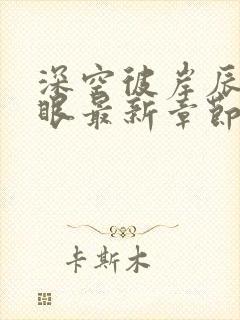 深空彼岸辰
眼最新章節
卡斯木